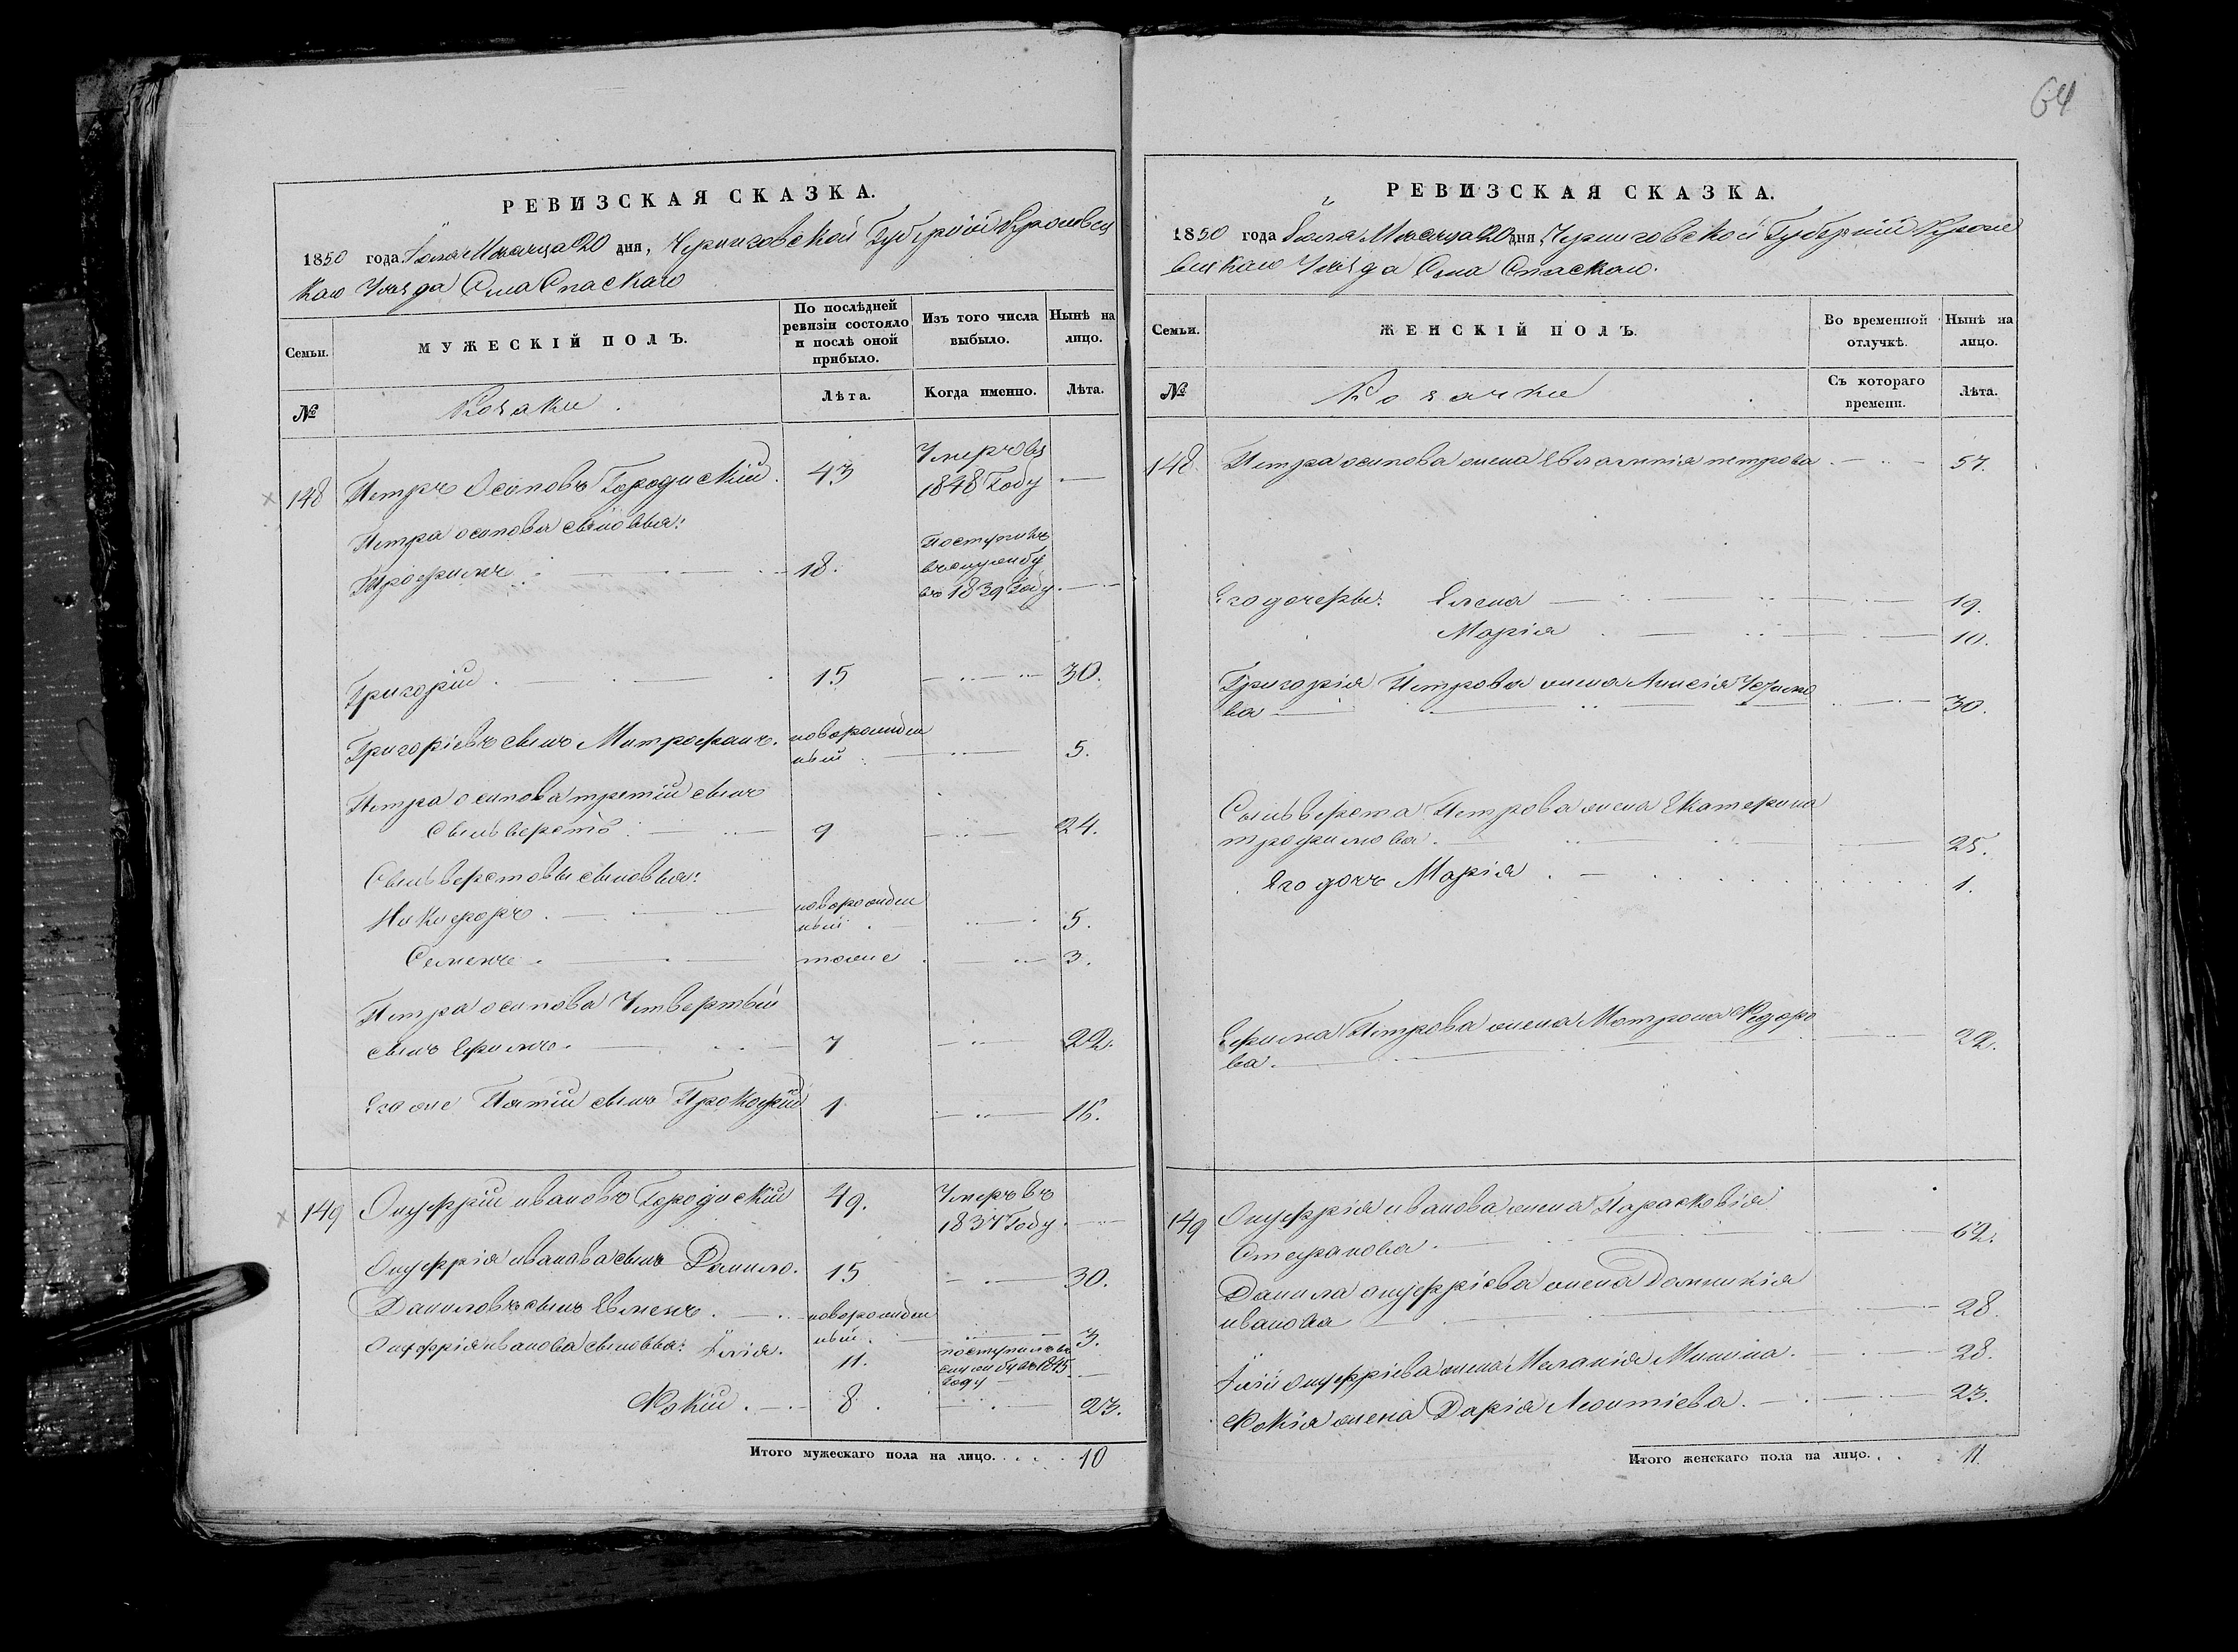 РЕВИЗСКАЯ СКАЗКА.
1850 года Іюля Мѣсяца 20 дня, Черниговской Губерніи Кролевец
каго Уѣзда Села Спаскаго
Семьи. МУЖЕСКІЙ ПОЛЪ. По послѣдней ревизіи состояло и послѣ оной прибыло. Изъ того числа выбыло. Нынѣ на лицо.
№ Козаки. Лѣта. Когда именно. Лѣта.
148 Петръ Осиповъ Городискій. 43 Умеръ въ 1848 Году
Петра осипова сыновья:
Трофимъ 18. Поступилъ въ службу въ 1839 Году.
Григорій 15 30.
Григоріевъ сынъ Митрофанъ. новорожден
ный 5.
Петра осипова третій сынъ
Сыльверстъ 9 24.
Сыльверстовы сыновья:
Никифоръ новорожден
ный 5.
Семенъ тоже 3.
Петра осипова Четвертый
сынъ Ефимъ. 7 22.
Его же Пятій сынъ Прокофій 1 16.
149 Онуфрій ивановъ Городискій 49. Умеръ въ
1837 Году.
Онуфрія иванова сынъ Данило. 15 30.
Даниловъ сынъ Евменъ новорожден
ный 3.
Онуфрія иванова сыновья: Іюлія. 11. поступилъ въ
службу въ 1845
году
Фокій. 8 23.
Итого мужескаго пола на лицо. 10
64
РЕВИЗСКАЯ СКАЗКА.
1850 года Іюля Мѣсяца 20 дня, Черниговской Губерніи Кроле
вецкаго Уѣзда Села Спаскаго.
Семьи. ЖЕНСКІЙ ПОЛЪ. Во временной отлучкѣ. Нынѣ на лицо.
№ Козачки Съ котораго времени. Лѣта.
148. Петра осипова жена Евлампія петрова 57.
Его дочеры: Елена 19.
Марія 10.
Григорія Петрова жена Анисія
ва 30.
Сыльверста Петрова жена Екатерина
трофимова 25.
Его дочь Марія 1.
Ефима Петрова жена Матрона Федоро
ва. 22.
149 Онуфрія иванова жена Парасковія
Стефанова. 62.
Данила онуфріева жена Домникія
иванова 28
онуфріева жена Меланія Минина. 28.
Фокія жена Дарія Леонтіева. 23.
Итого женскаго пола на лицо. 11.